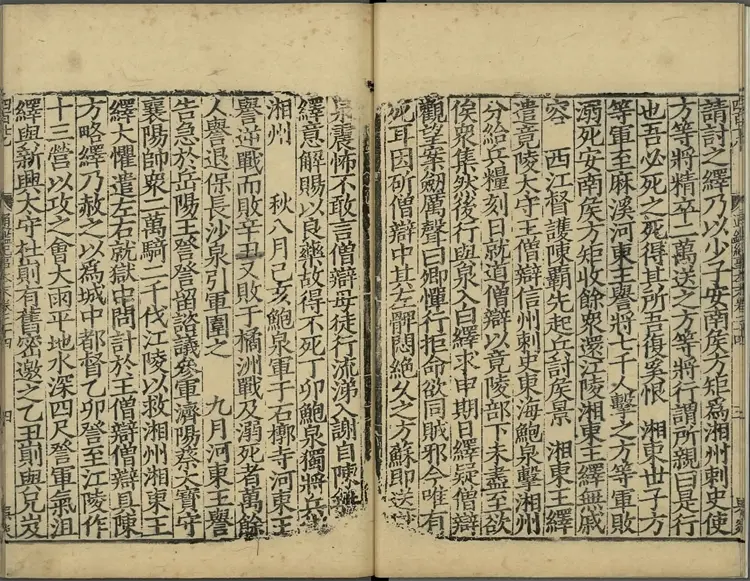 請討之繹乃以少子安南侯方矩爲湘州刺史使
方等將精卒二萬送之方等將行謂所親曰是行
也吾必死之死得其所吾復奚恨　湘東世子方
等軍至麻溪河東王譽將七千人擊之方等軍敗
溺死安南侯方矩收餘衆還江陵湘東王繹無戚
容　西江督護陳霸先起兵討侯景　湘東王繹
遣竟陵大守王僧辯信州刺史東海鮑泉擊湘州
分給兵糧刻日就道僧辯以竟陵部下未盡至欲
俟衆集然後行與泉入白繹求申期日繹疑僧辯
觀望案劒厲聲曰卿憚行拒命欲同賊邪今唯有
死耳因斫僧辯中其左髀悶絶久之方蘇即送
泉震怖不敢言僧辯母徒行流涕入謝自陳無
繹意解賜以良藥故得不死丁卯鮑泉獨將兵
湘州　秋八月己亥鮑泉軍于石槨寺河東王
譽逆戰而敗辛丑又敗于橘洲戰及溺死者萬餘
人譽退保長沙泉引軍圍之　九月河東王譽
告急於岳陽王詧詧留諮議參軍濟陽蔡大寶守
襄陽帥衆二萬騎二千伐江陵以救湘州湘東王
繹大懼遣左右就獄中問計於王僧辯僧辯具陳
方略繹乃赦之以爲城中都督乙卯詧至江陵作
十三營以攻之會大雨平地水深四尺詧軍氣沮
繹與新興大守杜崱有舊密邀之乙丑崱與兄岌
四